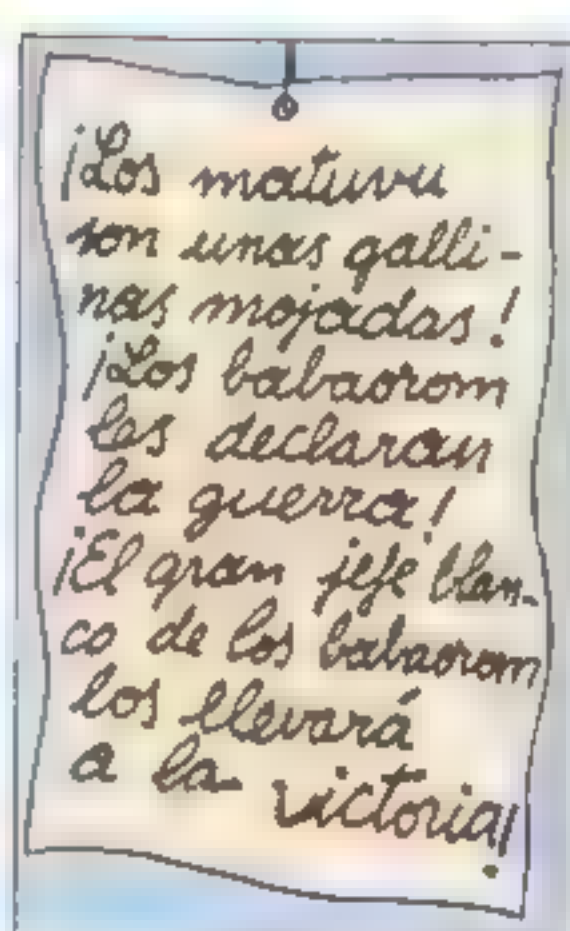 ¡Los matuvu
son unas galli-
nas mojadas!
¡Los babaorom
les declaran
la guerra!
¡El gran jefe blan-
co de los babaorom
los llevará
a la victoria!